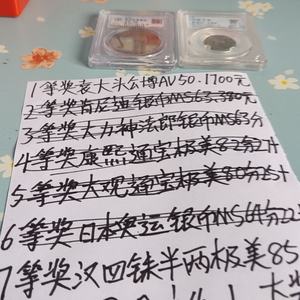 1等奖袁大头公博AV50.1700元
2等奖肯尼迪银币MS63.380元
3等奖大力神法郎银币MS63分
4等奖康熙通宝极美82分2十
5等奖大观通宝极美80分25十
6等奖日本奥运银币MS64分22
7等奖汉四铢半两极美85